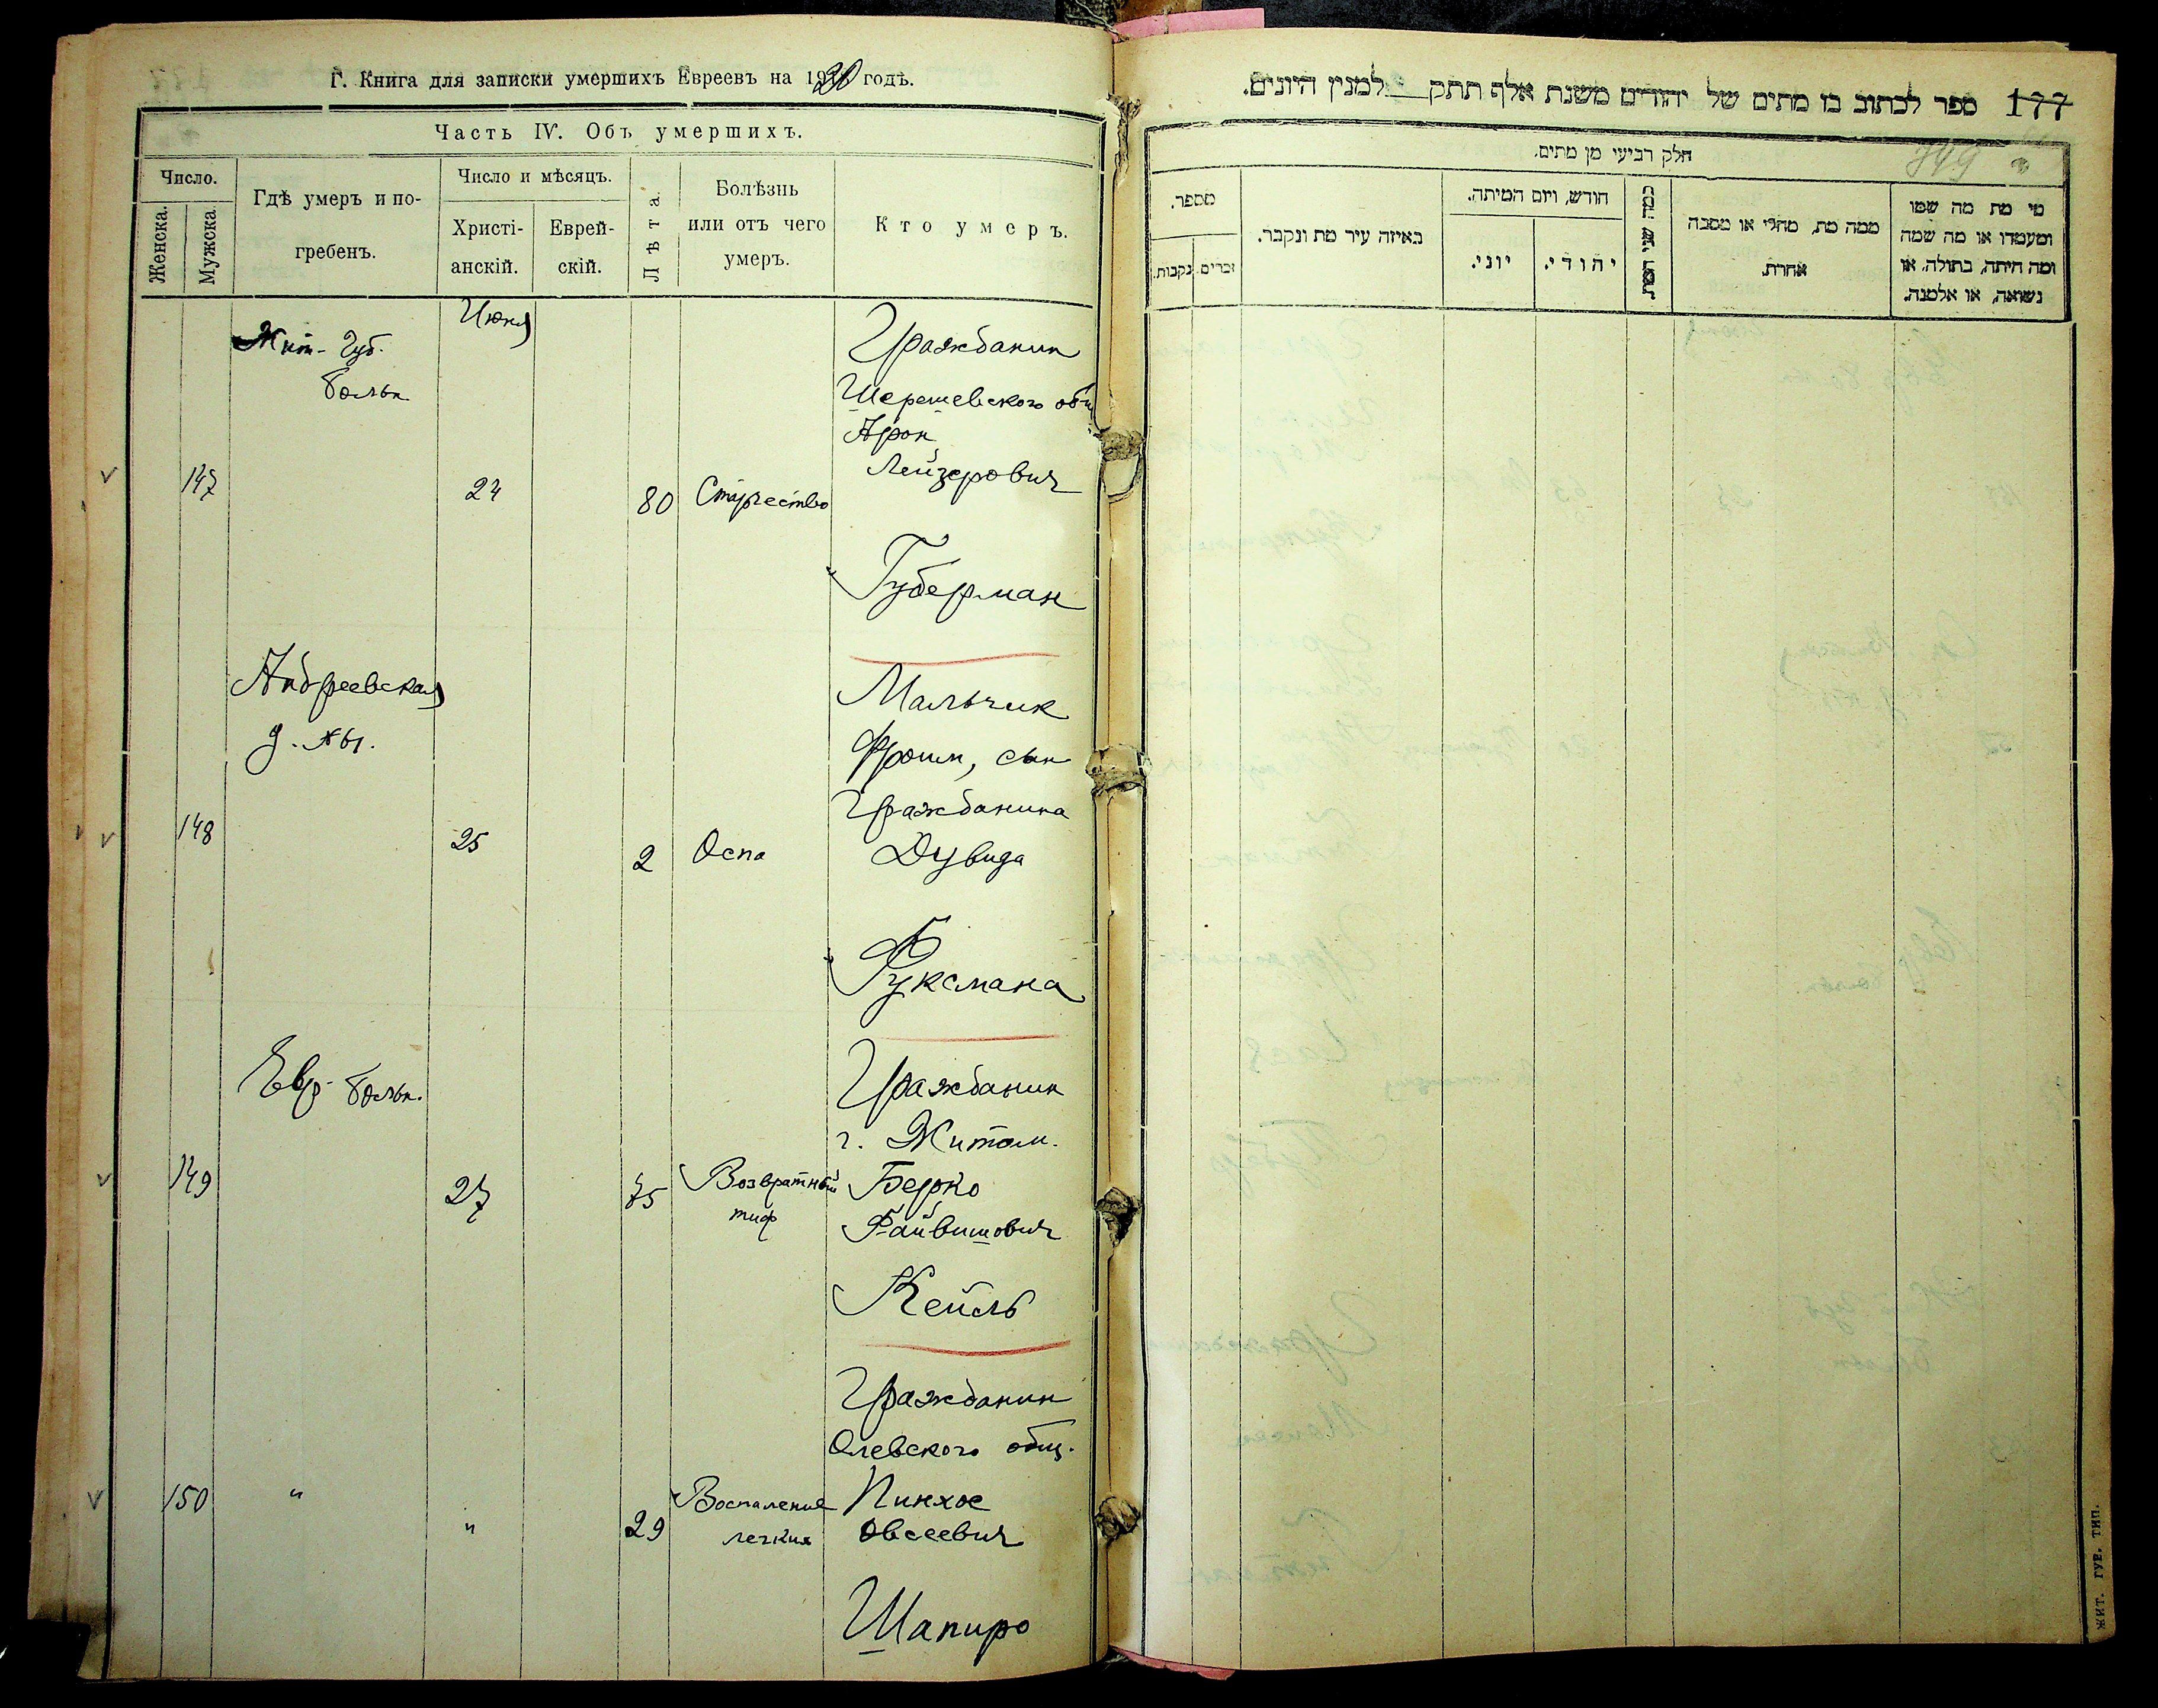 Г. Книга для записки умершихъ Евреевъ на 1920 годъ.
Часть IV. Объ умершихъ.
Число.
Женска.
Мужска.
Гдѣ умеръ и по-
гребенъ.
Число и мѣсяцъ.
Христі-
анскій.
Еврей-
скій.
Лѣта.
Болѣзнь
или отъ чего
умеръ.
Кто умеръ.
Июня
Жит. Губ.
больн
147
24
80
Старчество
Гражданин
Шерешевского общ
Арон
Лейзерович
Губерман
Андреевская
д. №1.
148
25
2
Оспа
Мальчик
Фроим, сын
Гражданина
Дувида
Фуксмана
Евр. больн.
149
27
75
Возвратный
тиф
Гражданин
г. Житом.
Берко
Файвишович
Кейль
150
"
"
29
Воспаление
легких
Гражданин
Олевского общ.
Пинхос
Овсеевич
Шапиро
177
ספר לכתוב בו מתים של יהודים משנת אלף תתק למנין היונים.
349
חלק רביעי מן מתים.
מספר.
זכרים.
נקבות.
באיזה עיר מת ונקבר.
חודש, ויום המיתה.
יוני.
יהודי.
כמה שני המת
ממה מת, מחלי או מסבה
אחרת.
מי מת מה שמו
ומעמדו או מה שמה
ומה היתה, בתולה, או
נשואה, או אלמנה.
ЖИТ. ГУБ. ТИП.